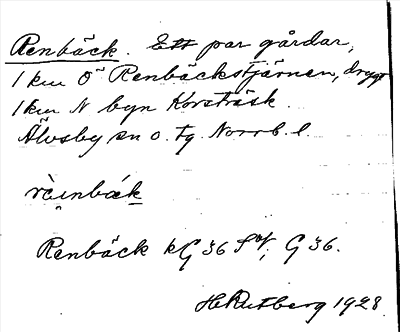 Renbäck. Ett par gårdar,
1 km Ö Renbäckstjärnen, drygt
1 km N byn Korsträsk.
Älvsby sn o. tg. Norrb. l.
rὲnbäk
Renbäck kG 36 SV, G 36.
H Rutberg 1928